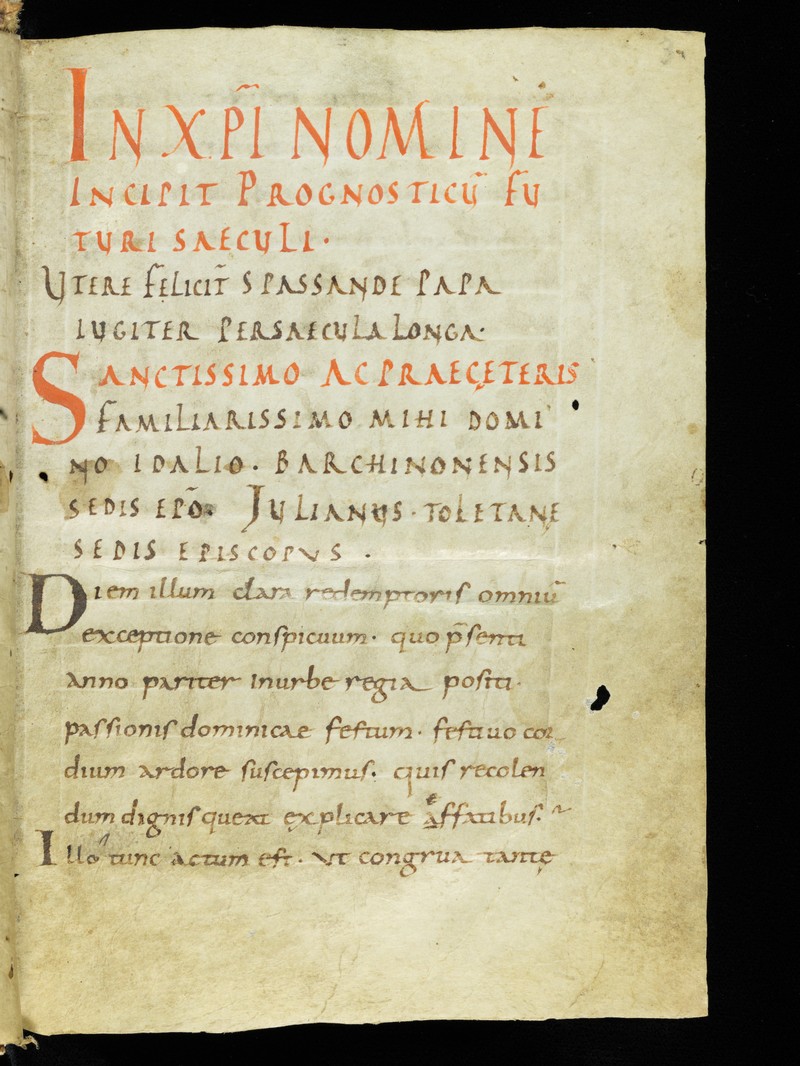 IN XP̄I NOMINE
INCIPIT PROGNOSTICŪ FU
TURI SAECULI·
UTERE FELICIT̄ SPASSANDE PAPA
IUGITER PERSAECULA LONGA·
SANCTISSIMO AC PRAECETERIS
FAMILIARISSIMO MIHI DOMI
NO IDALIO· BARCHINONENSIS
SEDIS EPO̅· JULIANUS· TOLETANE
SEDIS EPISCOPUS ·
Diem illum clara redemptoris omniū
exceptione conspicuum· quo p̄senti
anno pariter Inurbe regia positi·
passionis dominicae festum· festiuo cor
dium ardore suscepimus· quis recolen
dum dignis queat explicare affatibus?
Illo tunc actum est· ut congrua tantę